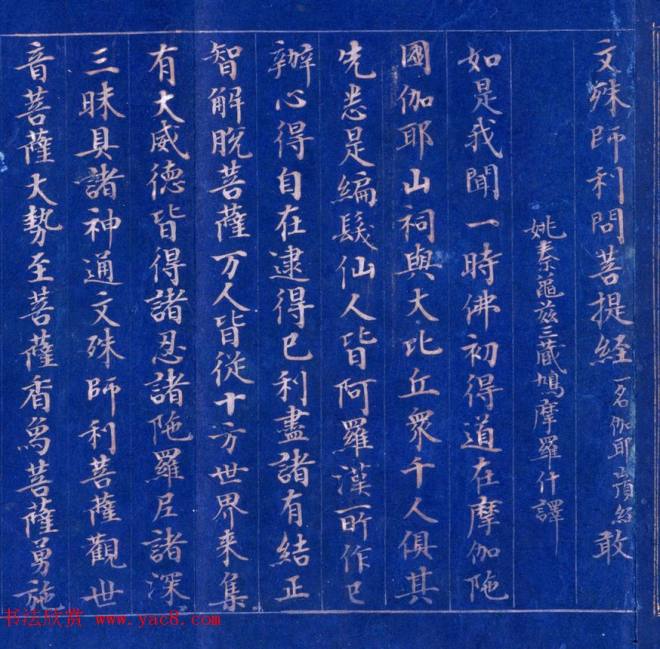 文殊師利問菩提經一名伽耶山頂經 敢
姚秦龜茲三藏鳩摩羅什譯
如是我聞一時佛初得道在摩伽陁
國伽耶山祠與大比丘衆千人俱其
先悉是編髮仙人皆阿羅漢所作已
辦心得自在逮得己利盡諸有結正
智解脫菩薩万人皆從十方世界来集
有大威德皆得諸忍諸陁羅尼諸深
三昧具諸神通文殊師利菩薩觀世
音菩薩大勢至菩薩香象菩薩勇施
书法欣赏 www.yac8.com